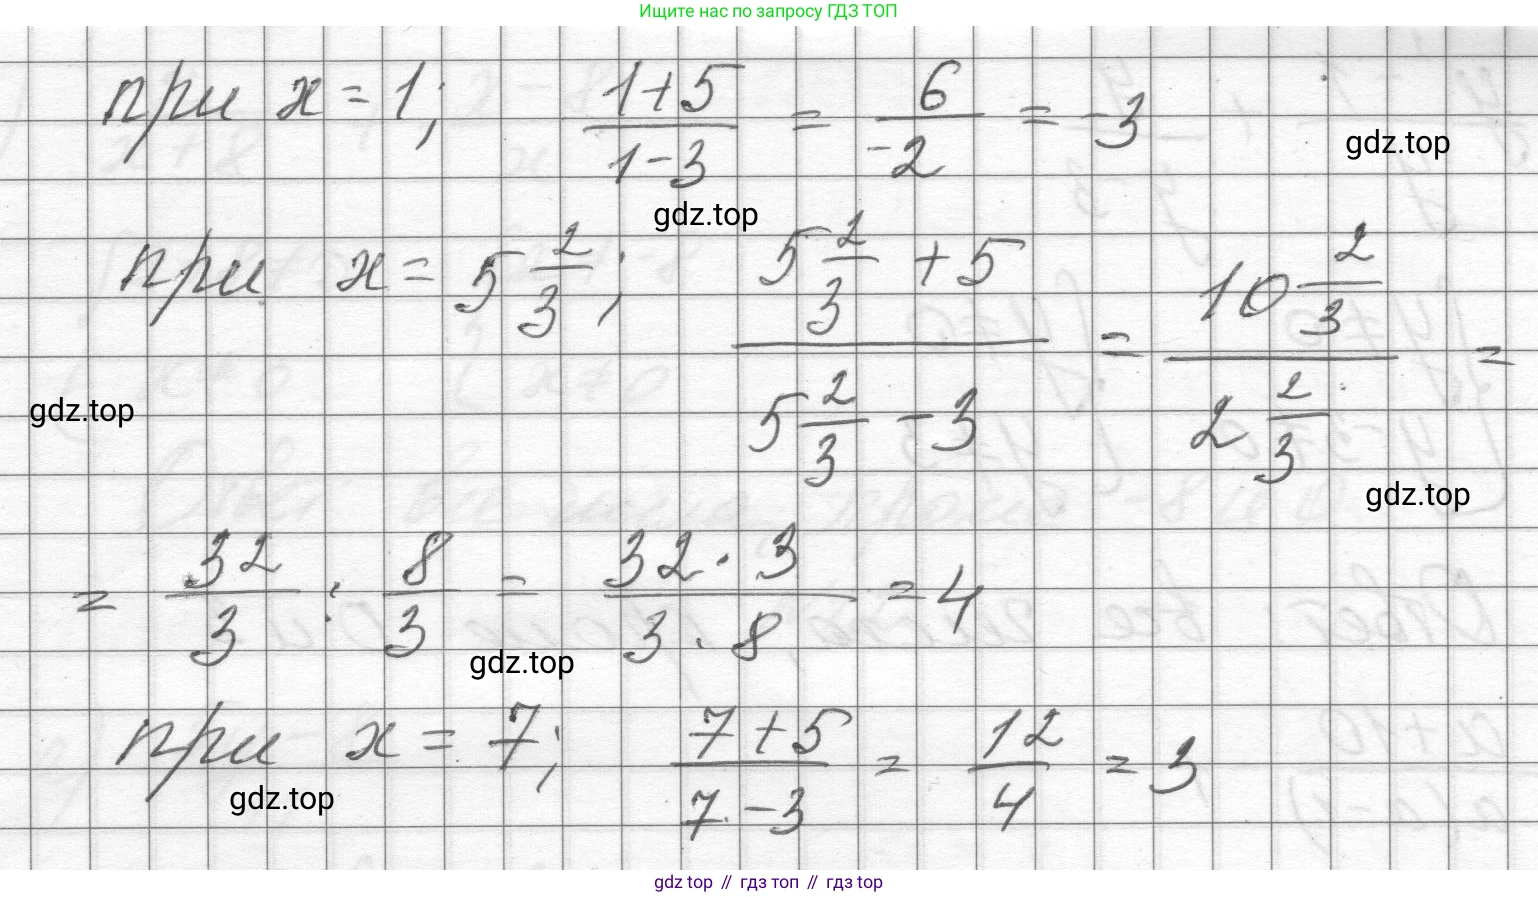 Ищите нас по запросу ГДЗ ТОП
при x = 1; (1+5)/(1-3) = 6/(-2) = -3
gdz.top
gdz.top
при x = 5 2/3; (5 2/3 + 5)/(5 2/3 - 3) = (10 2/3)/(2 2/3) =
gdz.top
gdz.top
= 32/3 : 8/3 = (32 · 3)/(3 · 8) = 4
gdz.top
при x = 7; (7+5)/(7-3) = 12/4 = 3
gdz.top
gdz top // гдз топ // гдз.top